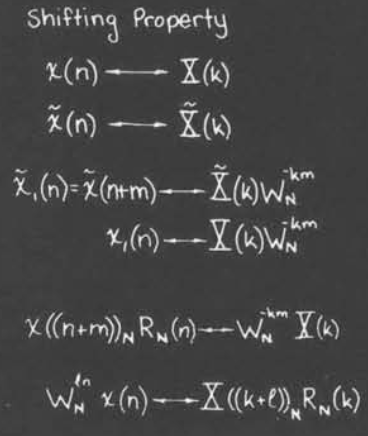 Shifting Property
x(n) ⟷ X(k)
x̃(n) ⟷ X̃(k)
x̃₁(n) = x̃(n+m) ⟷ X̃(k)W_N^{-km}
x₁(n) ⟷ X(k)W_N^{-km}
x((n+m))_N R_N(n) ⟷ W_N^{-km} X(k)
W_N^{ln} x(n) ⟷ X((k+l))_N R_N(k)